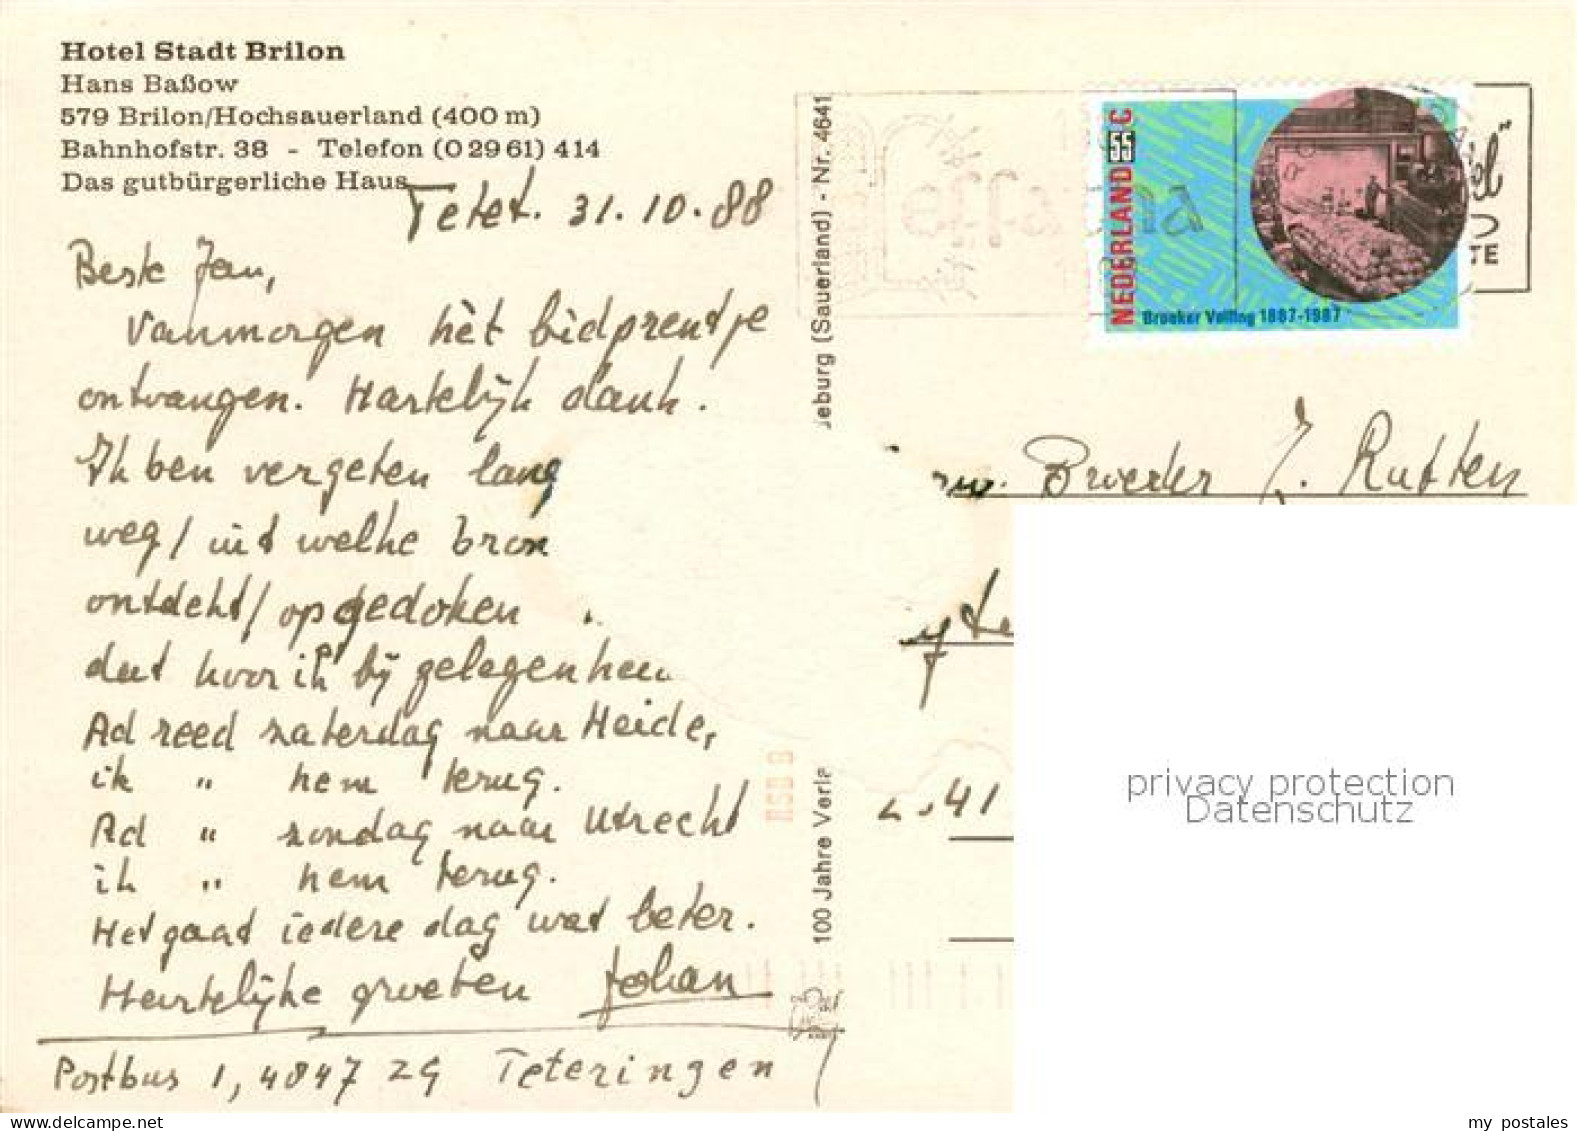 Hotel Stadt Brilon
Hans Baßow
579 Brilon/Hochsauerland (400 m)
Bahnhofstr. 38 - Telefon (0 29 61) 414
Das gutbürgerliche Haus
Tetet. 31.10.88
Beste Jan,
Vanmorgen hèt bidprentje
ontvangen. Hartelijk dank.
Ik ben vergeten lang
weg / uit welke bron
ontdekt / opgedoken
dat hoor ik bij
Ad reed zaterdag naar Heide,
ik " hem terug.
Ad " zondag naar Utrecht
ik " hem terug.
Het gaat iedere dag wat beter.
Hartelijke groeten Johan
Postbus 1, 4847 ZG Teteringen
eburg (Sauerland) - Nr. 4641
100 Jahre Verla
RSB B
NEDERLAND 55 C
Broeker Veiling 1887-1987
TE
Broeder J. Rutten
41
privacy protection
Datenschutz
my postales